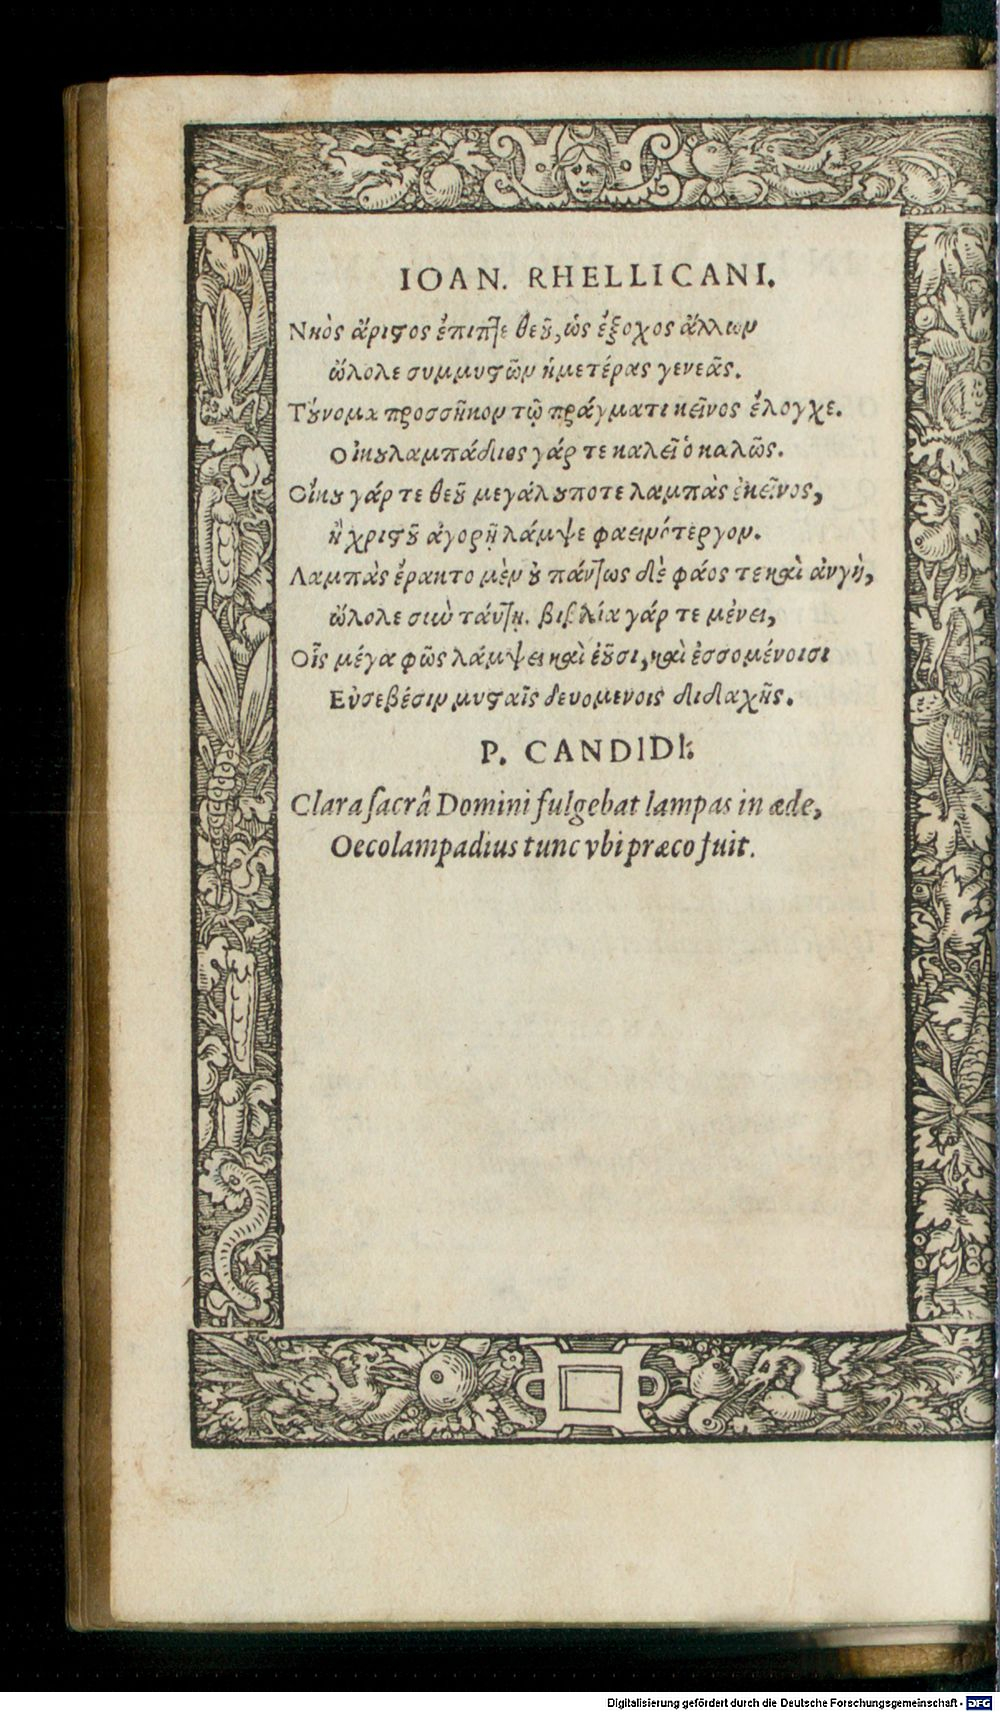 IOAN. RHELLICANI.
Νηὸς ἄριστος ἐπιπτε θεοῦ, ὡς ἔξοχος ἄλλων
ὤλολε συμμυστῶν ἡμετέρας γενεᾶς.
Τὔνομα προσσῆκον τῷ πράγματι κεῖνος ἔλογχε.
Οἰκουλαμπάδιος γάρ τε καλεῖ ὁ καλῶς.
Οἴκου γάρ τε θεοῦ μεγάλου ποτε λαμπὰς ἐκεῖνος,
ἣ χριστοῦ ἀγορῇ λάμψε φαεινότεργον.
Λαμπὰς ἔρακτο μὲν οὐ πάντως δὲ φάος τε καὶ ἀυγὴ,
ὤλολε σιωὺ τάυτῃ. βιβλία γάρ τε μένει,
Οἷς μέγα φῶς λάμψει καὶ ἐοῦσι, καὶ ἐσσομένοισι
Εὐσεβέσιν μυσταῖς δευομενοις διδαχῆς.
P. CANDIDI:
Clara sacrâ Domini fulgebat lampas in æde,
Oecolampadius tunc vbi præco fuit.
Digitalisierung gefördert durch die Deutsche Forschungsgemeinschaft - DFG